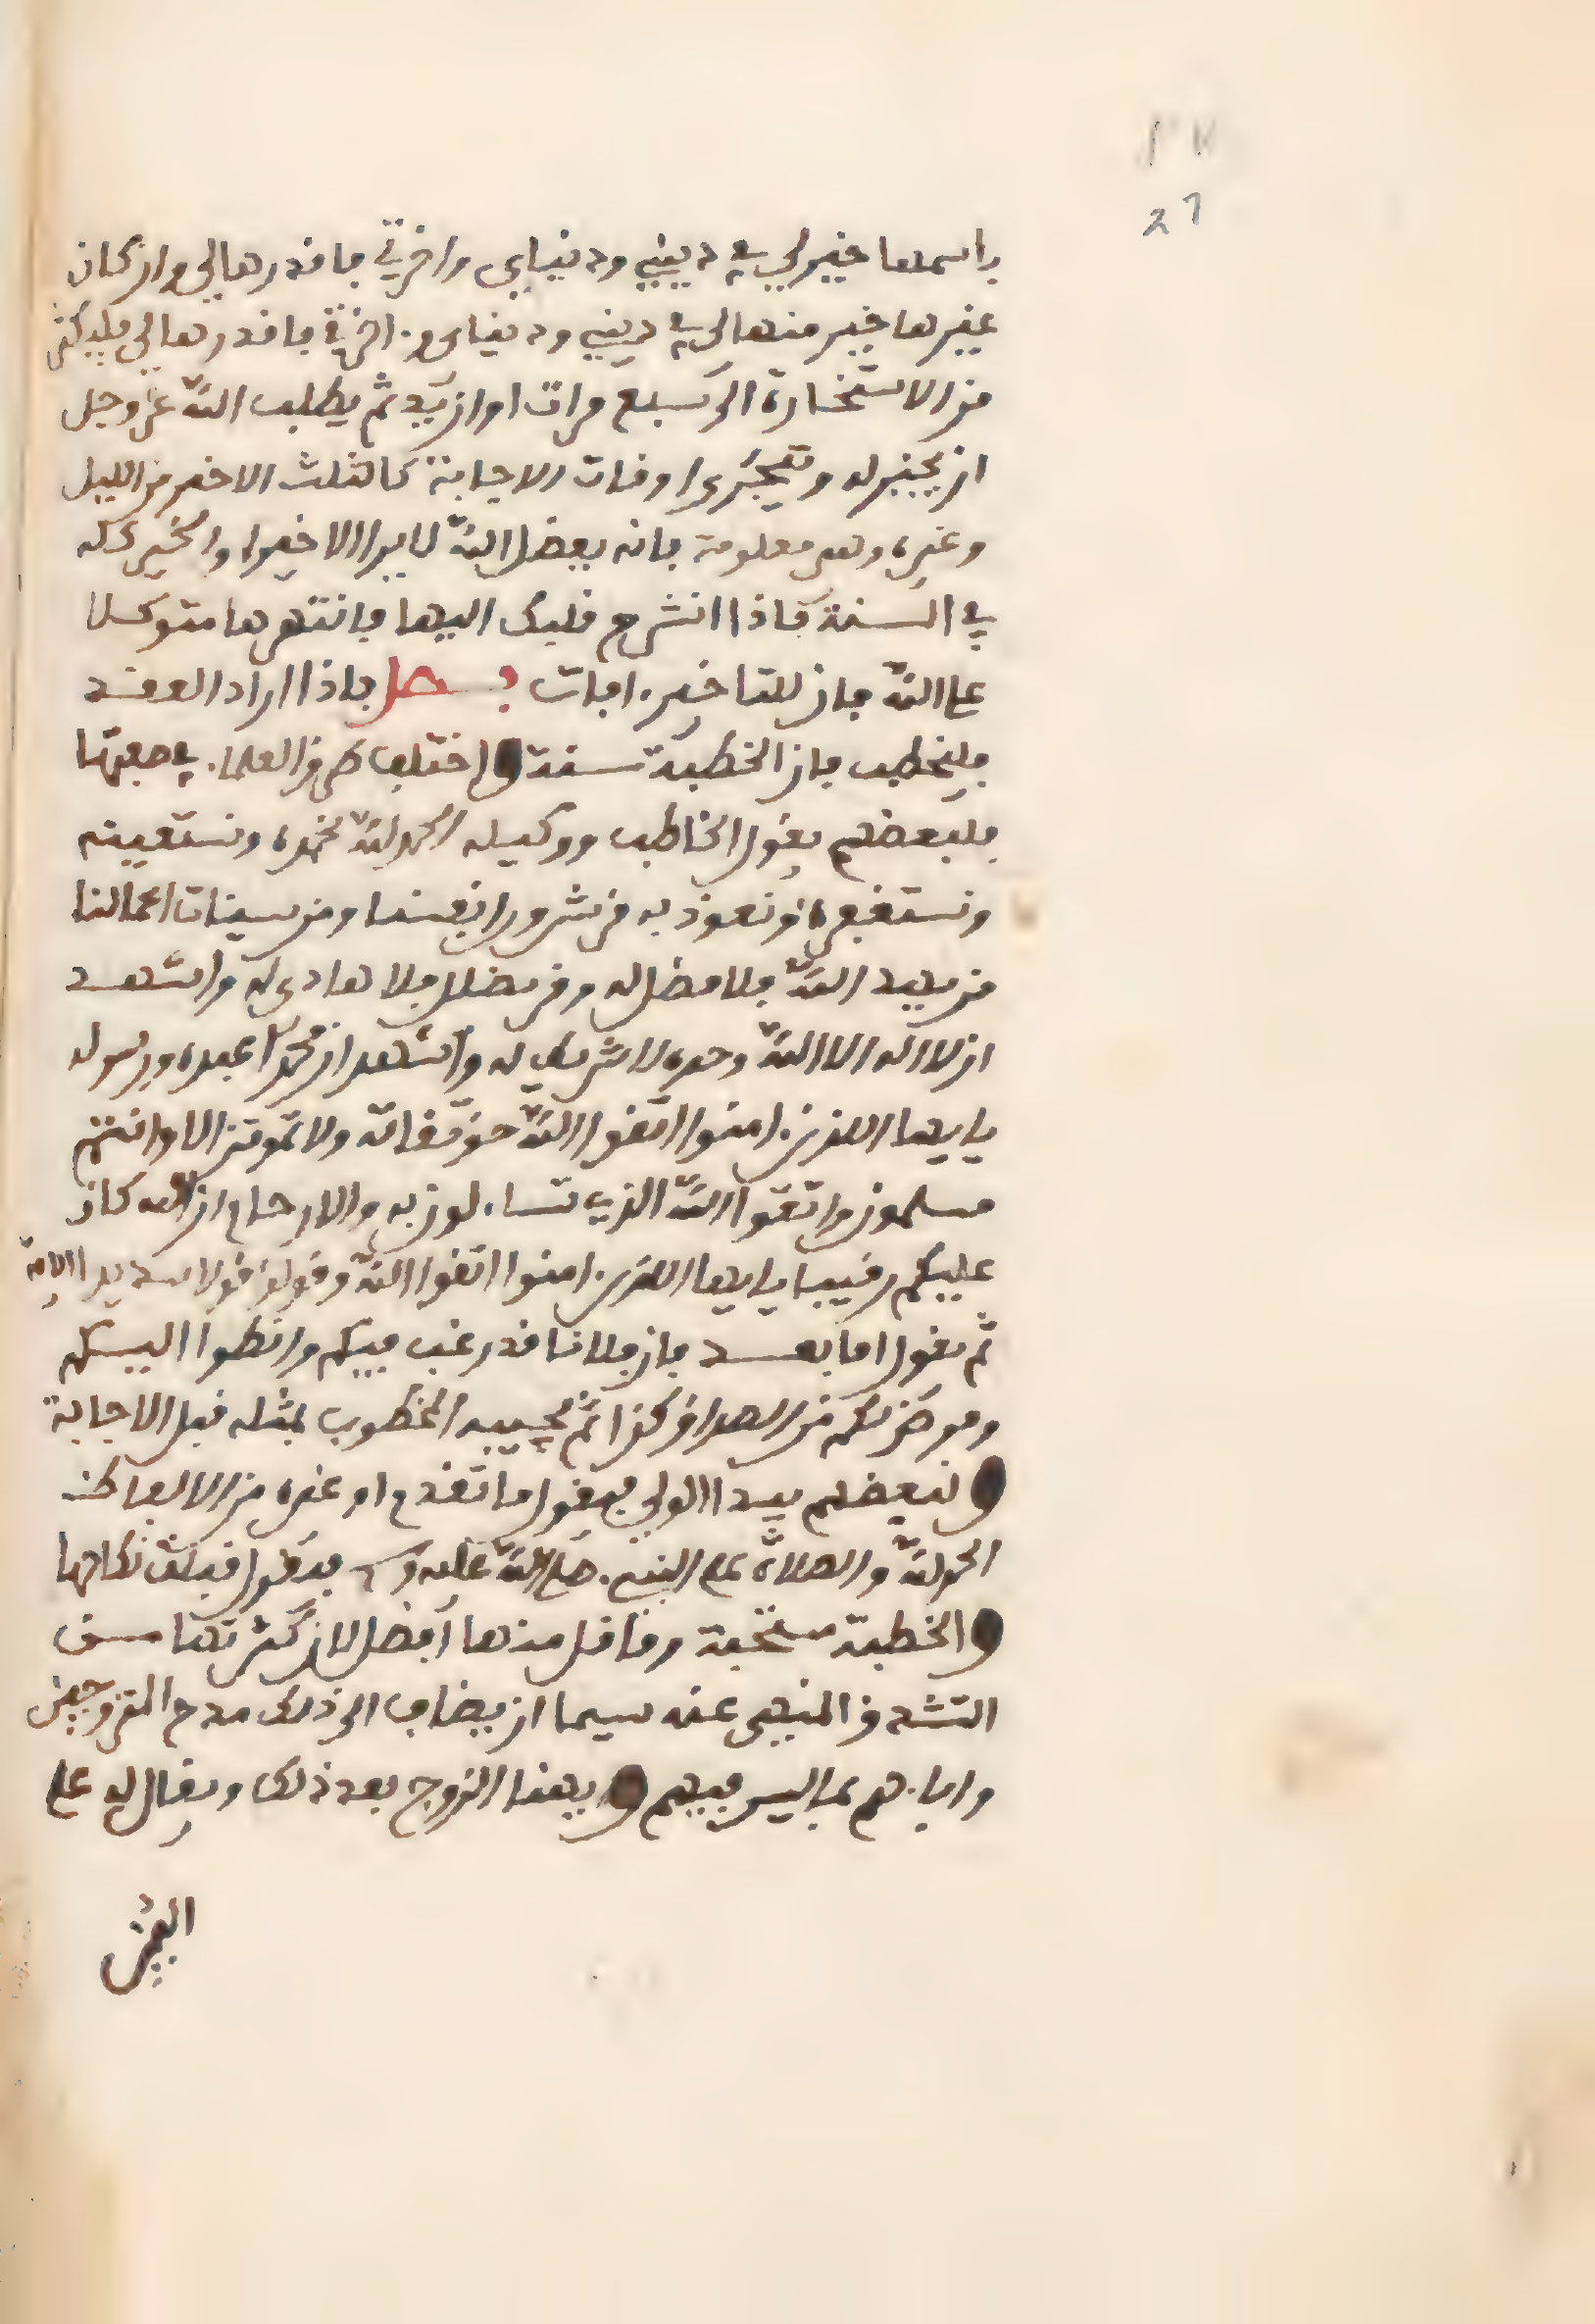 27
باسمها خير لي في ديني ودنياي واخرتي فاقدرها لي وان كان
غيرها خير منها لي في ديني ودنياي واخرتي فاقدرها لي فليكثر
من الاستخارة الى سبع مرات او ازيد ثم يطلب الله عز وجل
ان يخير له ويتحرى اوقات الاجابة كالثلث الاخير من الليل
وغيره وهى معلومة فانه بفضل الله لا يرا الا خيرا والخير كله
في السنة فاذا انشرح قلبك اليها فانتهرها متوكلا
على الله فان للتاخير افات فصل فاذا اراد العقد
فليخطب فان الخطبة سنة واختلف طرق العلما في صفتها
فلبعضهم يقول الخاطب ووكيله الحمد لله نحمده ونستعينه
ونستغفره ونعوذ به من شرور انفسنا ومن سيئات اعمالنا
من يهد الله فلا مضل له ومن يضلل فلا هادي له واشهد
ان لا اله الا الله وحده لا شريك له واشهد ان محمدا عبده ورسوله
يايها الذين امنوا اتقوا الله حق تقاته ولا تموتن الا وانتم
مسلمون واتقوا الله الذي تساءلون به والارحام ان الله كان
عليكم رقيبا يايها الذين امنوا اتقوا الله وقولوا قولا سديدا الاية
ثم يقول اما بعد فان فلانا قد رغب فيكم وانظوا اليكم
وفرض لكم من الصداق كذا ثم يجيبه المخطوب بمثله قبل الاجابة
ولبعضهم يبدا الولي فيقول ما تقدم او غيره من الالفاظ
الحمد لله والصلاة على النبي صلى الله عليه وسلم فيقول قبلت نكاحها
والخطبة مستحبة وما قل منها افضل لان كثرتها من
التشدق المنهي عنه سيما ان يضاف الى ذلك مدح المتزوجين
واباءهم بما ليس فيهم ويهنا الزوج بعد ذلك ويقال له على
اليمن